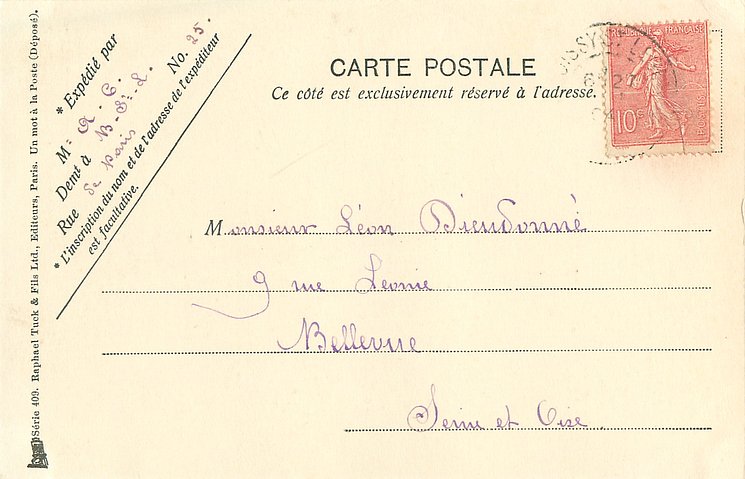 CARTE POSTALE
Ce côté est exclusivement réservé à l'adresse.
* Expédié par
M A. C. No. 25.
Demt à B-St-L.
Rue de Paris
* L'inscription du nom et de l'adresse de l'expéditeur
est facultative.
REPUBLIQUE FRANÇAISE
10c
POSTES
Monsieur Léon Dieudonné
9 rue Léonie
Bellevue
Seine et Oise
Série 409. Raphael Tuck & Fils Ltd., Editeurs, Paris. Un mot à la Poste (Déposé).